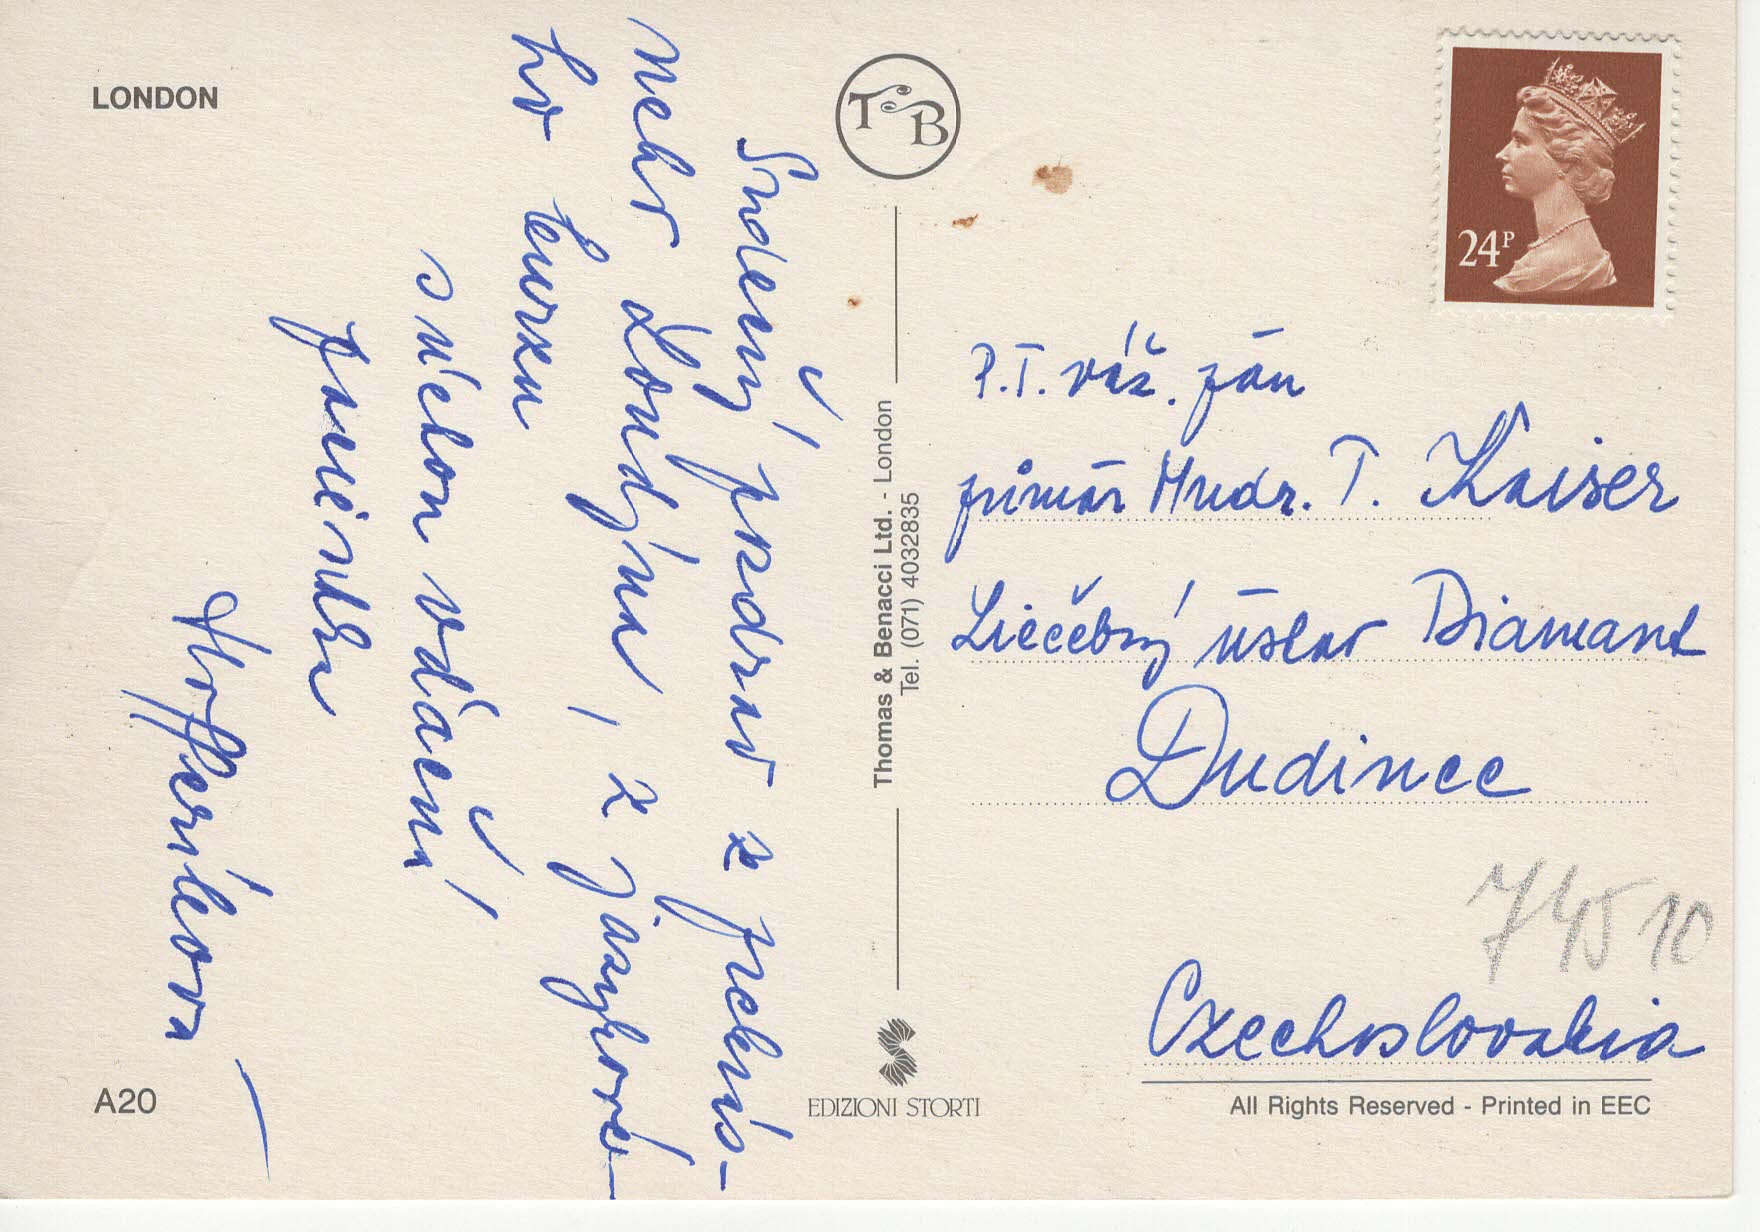 LONDON
Srdečný pozdrav z prekrás-
neho Londýna, z jazykové-
ho kurzu
s úctou vďační
T B
Thomas & Benacci Ltd. - London
Tel. (071) 4032835
EDIZIONI STORTI
A20
24P
P.T. váž. pán
primár Mudr. T. Kaiser
Liečebný ústav Diamant
Dudince
74510
Czechoslovakia
All Rights Reserved - Printed in EEC